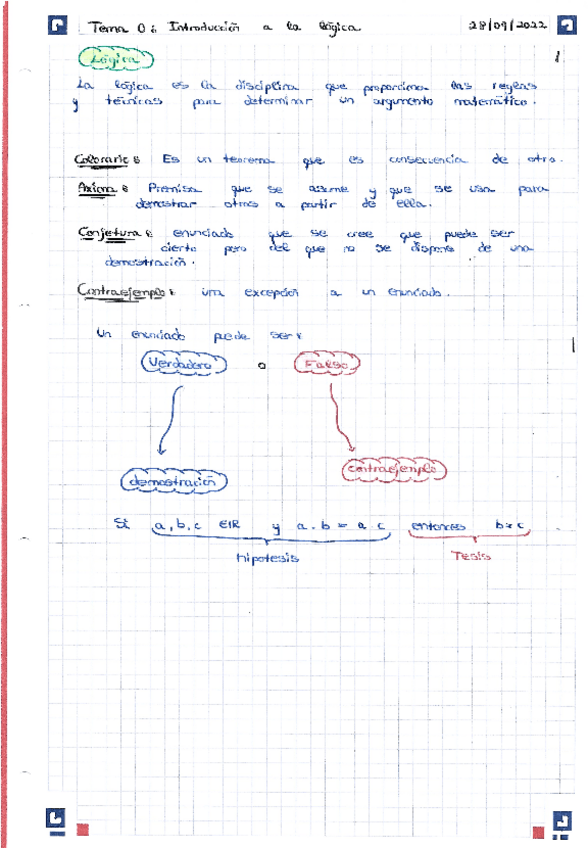 Tema 0: Introducción a la lógica 28/09/2022
Lógica 1
La lógica es la disciplina que proporciona las reglas
y técnicas para determinar un argumento matemático.
Colorario: Es un teorema que es consecuencia de otro.
Axioma: Premisa que se asume y que se usa para
demostrar otros a partir de ella.
Conjetura: enunciado que se cree que puede ser
cierto pero del que no se dispone de una
demostración.
Contraejemplo: una excepción a un enunciado.
Un enunciado puede ser:
Verdadero o Falso
demostración contraejemplo
Si a, b, c ∈ IR y a·b = a·c entonces b=c
hipotesis Tesis